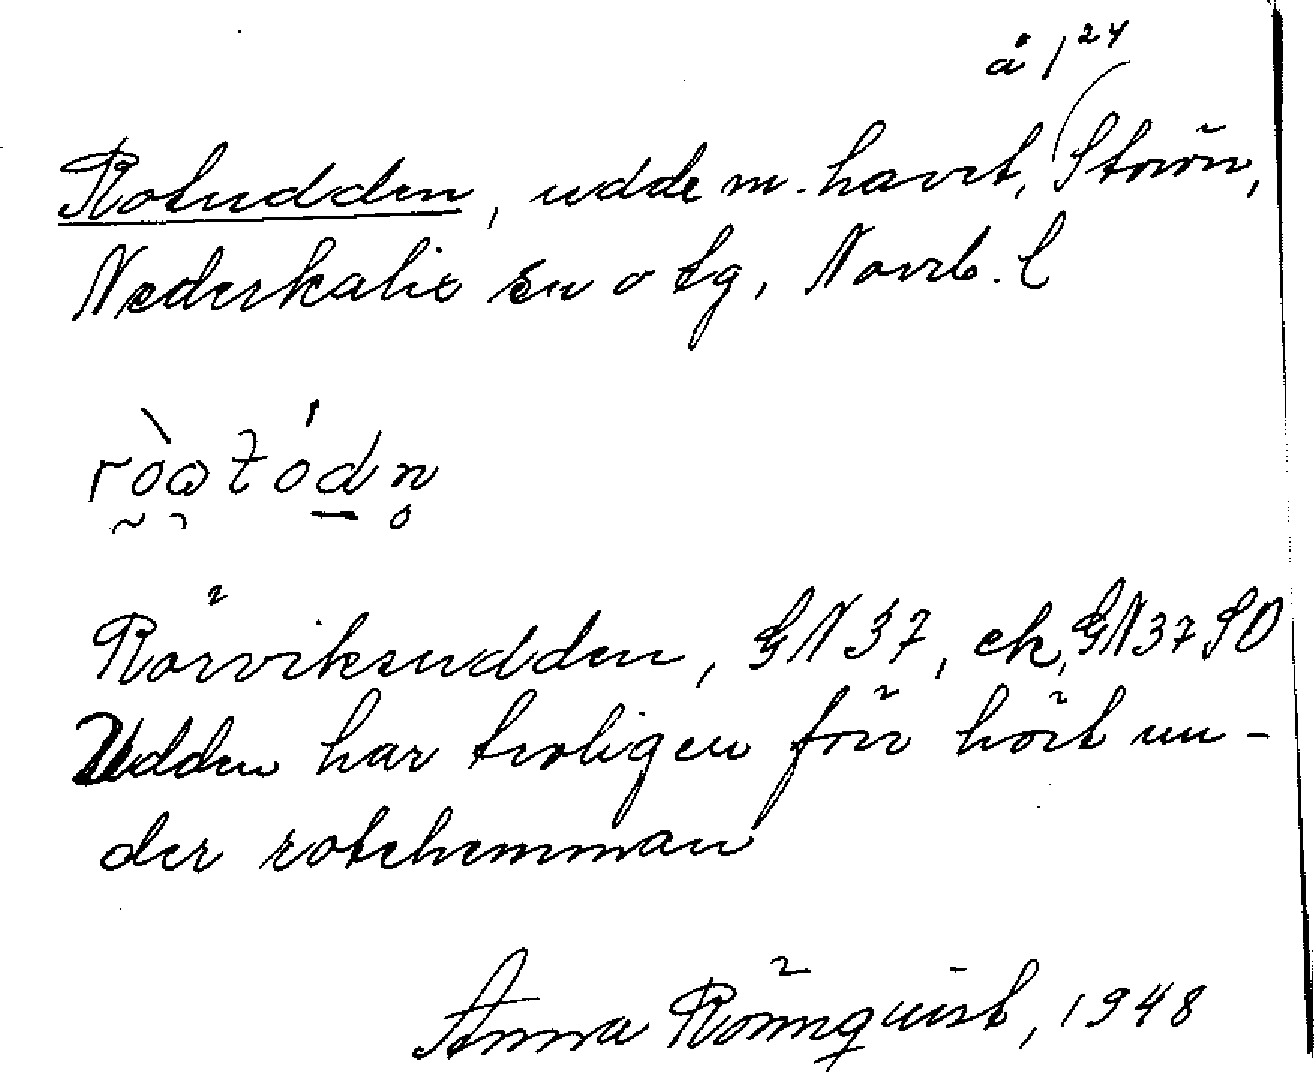 å 1²⁴
Rotudden, udde m. havet, Storön,
Nederkalix sn o tg, Norrb. l
Rörviksudden, GN 37, ek, GN 37 SO
Udden har troligen förr hört un-
der rotehemman
Anna Rönnquist, 1948